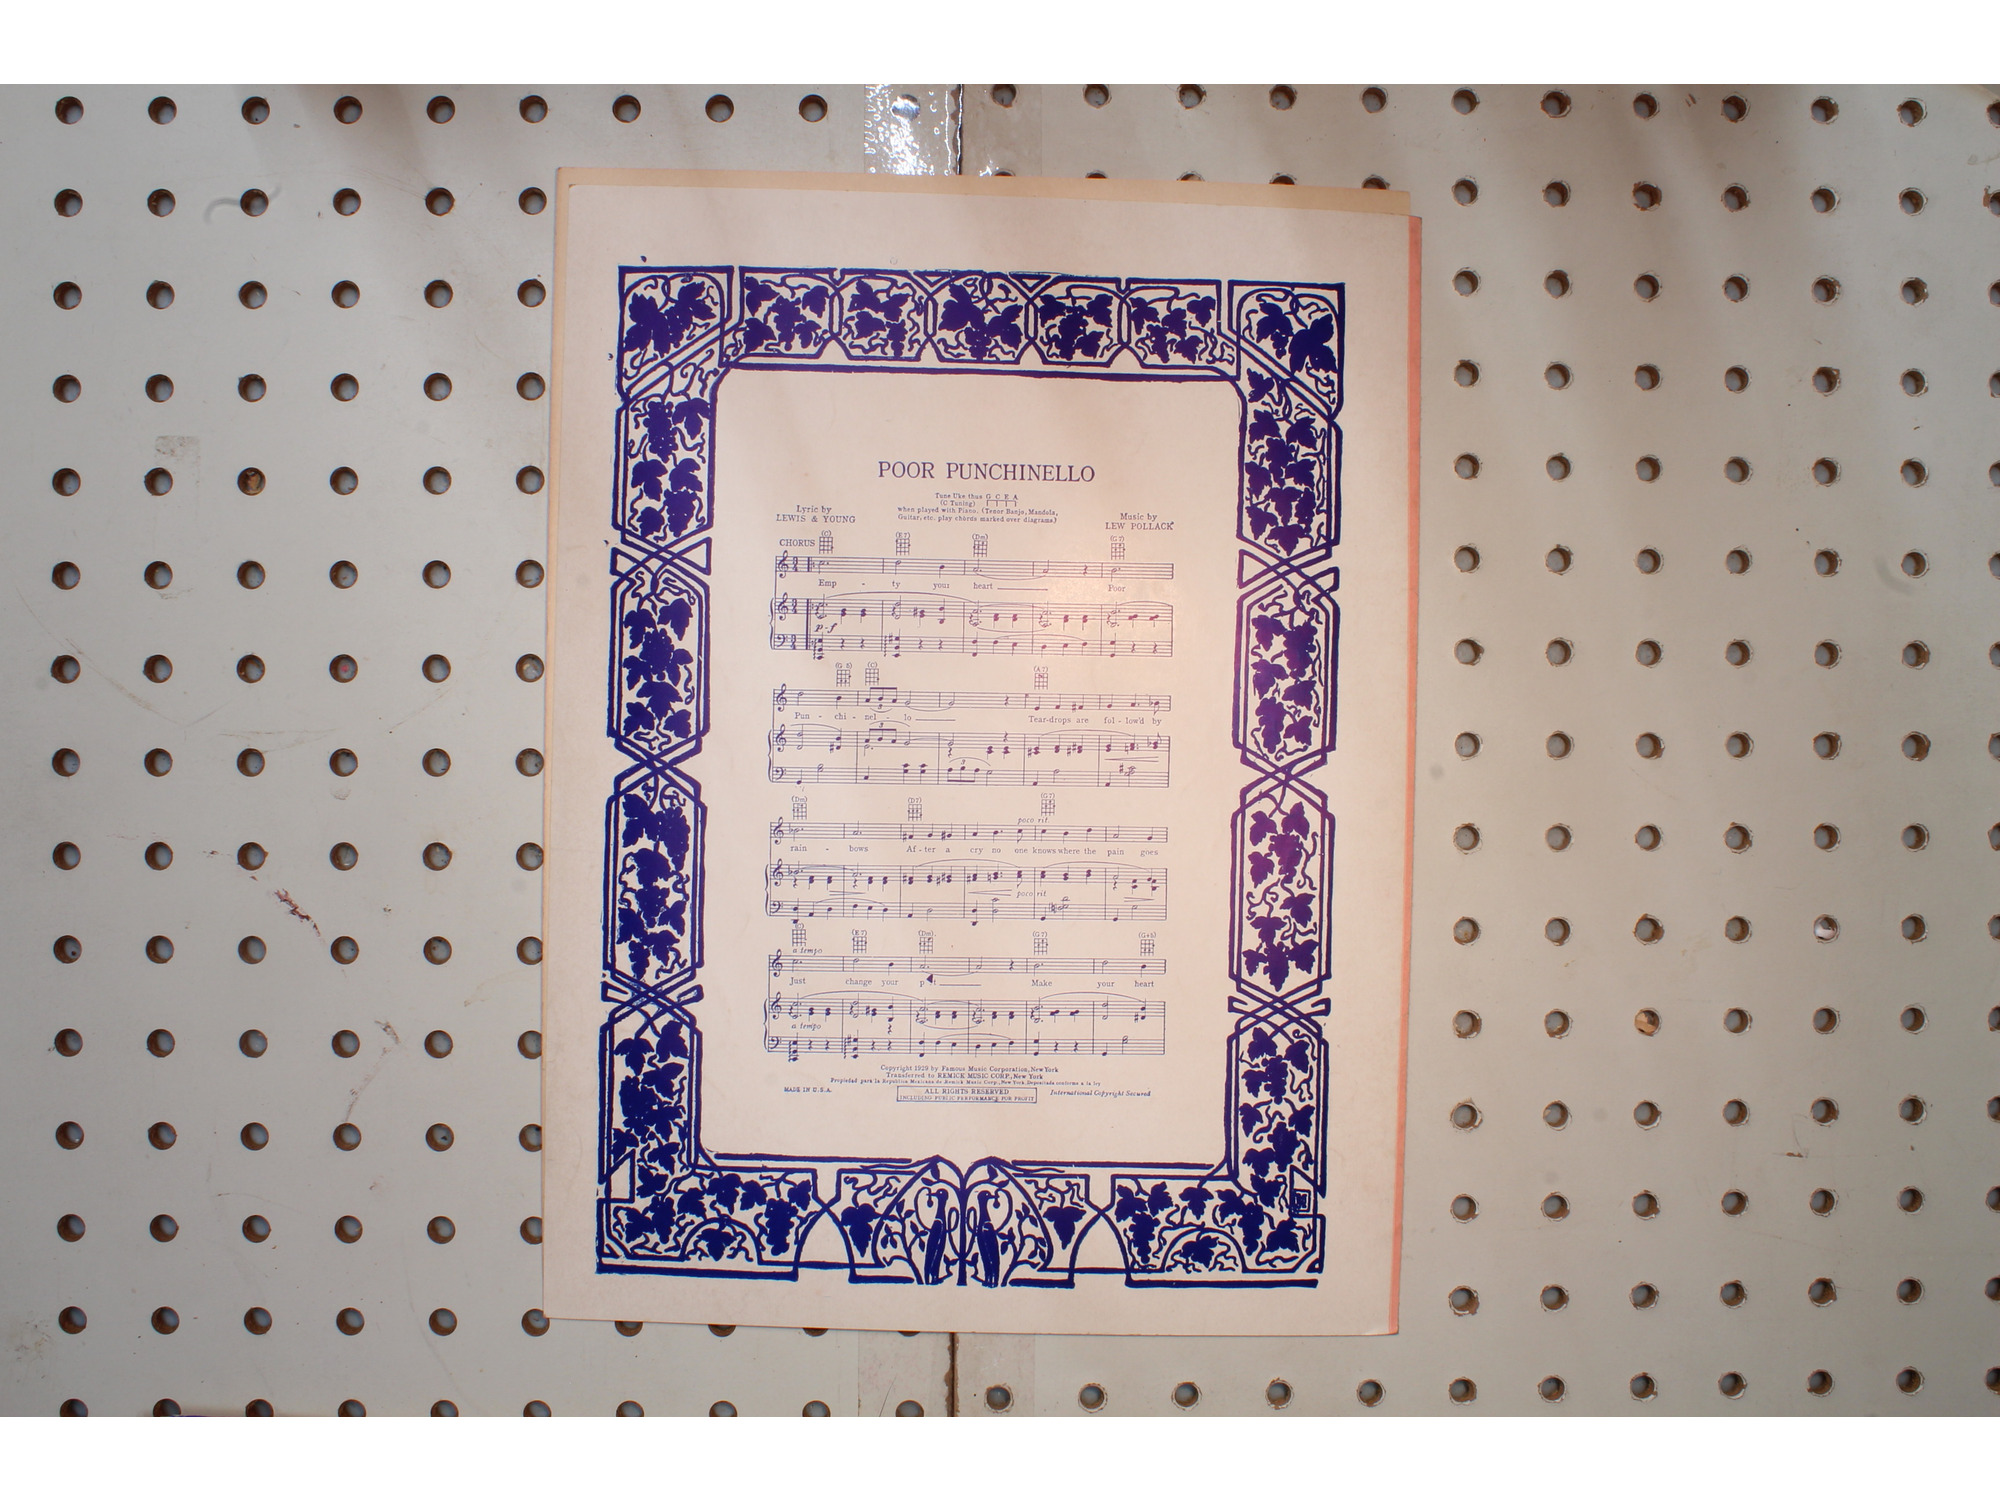 POOR PUNCHINELLO
Tune Uke thus G C E A
(C Tuning)
when played with Piano. (Tenor Banjo, Mandola,
Guitar, etc. play chords marked over diagrams)
Lyric by
LEWIS & YOUNG
Music by
LEW POLLACK
CHORUS (C) (E7) (Dm) (G7)
Emp - ty your heart Poor
p-f
(C) (A7)
3
Pun - chi - nel - lo Tear-drops are fol - low'd by
3
3
(Dm) (D7) (G7)
poco rit.
rain - bows Af - ter a cry no one knows where the pain goes
poco rit.
(C) (E7) (Dm) (G7) (G+5)
a tempo
Just change your Make your heart
a tempo
Copyright 1929 by Famous Music Corporation, New York
Transferred to REMICK MUSIC CORP., New York
Propiedad para la Republica Mexicana de Remick Music Corp., New York Depositada conforme a la ley
MADE IN U.S.A.
ALL RIGHTS RESERVED
INCLUDING PUBLIC PERFORMANCE FOR PROFIT
International Copyright Secured